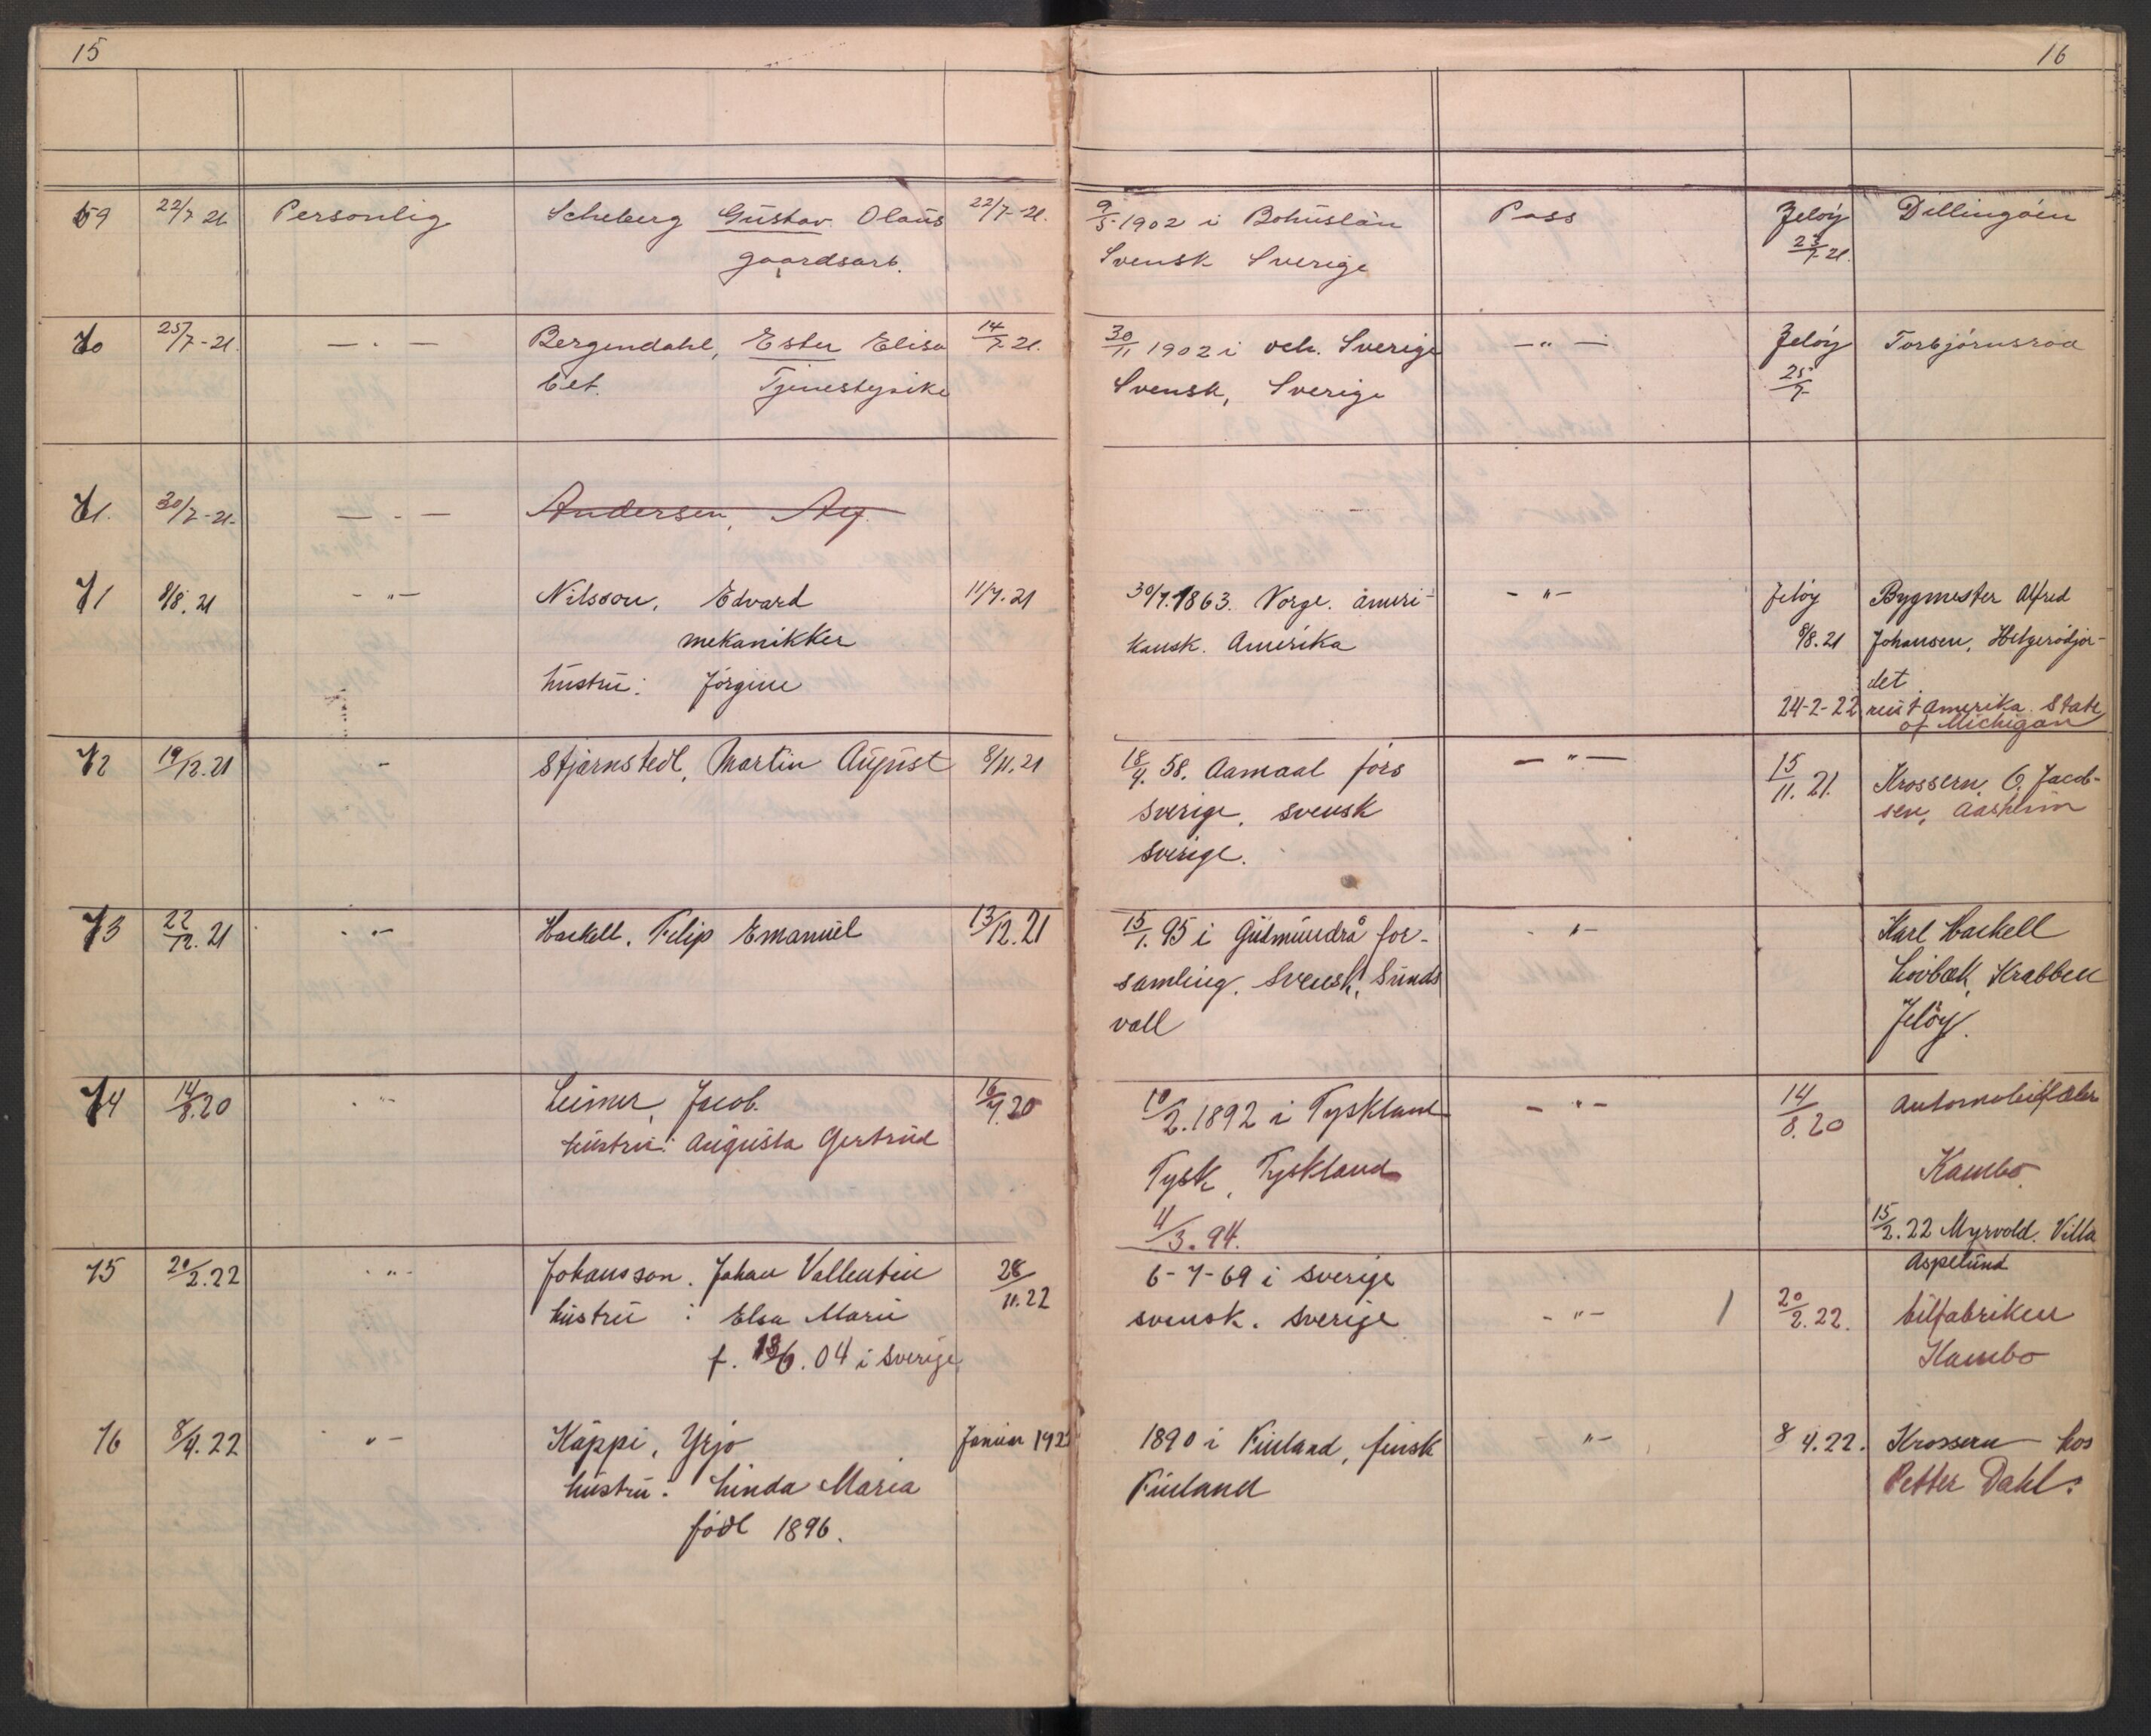 15
16
59 22/7 21 Personlig Scheberg Gustav Olaus 22/7-21. 9/5-1902 i Bohuslän Pass Jeløy Dillingøen
gaardsarb. Svensk Sverige 23/7-21.
70 25/7-21. — . — Bergendahl, Ester Elisa 14/7-21. 30/11 1902 i Sverige — „ — Jeløy Torbjørnsrød
bet. Tjenestepike Svensk, Sverige 25/7
71. 30/7-21. — . — Andersen,
71 8/8. 21 - „ - Nilsson, Edvard 11/7.21 30/7.1863. Norge. ameri- - „ - Jeløy Bygmester Alfred
mekanikker kansk. Amerika 8/8.21 Johansen, Helgerødjor-
hustru: Jørgine det
24-2-22 reist t Amerika. State
of Michigan
72 19/12.21 - Stjarnstedl, Martin August 8/11.21 18/4. 58. Aamaal førs — „ — 15/11. 21. Krossern, O. Jacob-
Sverige, svensk sen, Aasheim
Sverige.
73 22/12.21 - „ - Hackell, Filip Emanuel 13/12.21 15/1.95 i Gudmundrå for- - „ - Karl Hackell
samling. Svensk, Sunds Løvbæk, Krabben
vall Jeløy.
74 14/8.20 - „ - Leimer, Jacob. 16/7.20 10/2.1892 i Tyskland - „ - 14/8.20
hustru: Augusta Gertrud Tysk, Tyskland Kambo.
4/3. 94. 15/2.22 Myrvold. Villa
Aspelund
75 20/2.22 - „ - Johansson. Johan Vallentin 28/11.22 6-7-69 i Sverige
hustru : Elsa Marie svensk. Sverige - „ - / 20/2.22. bilfabriken
f. 13/6.04 i Sverige Kambo
76 8/4.22 „ - Käppi, Yrjo Januar 192 1890 i Finland, finsk „ - 8 4.22. Krossern hos
hustru: Linda Maria Finland Petter Dahl.
født 1896.